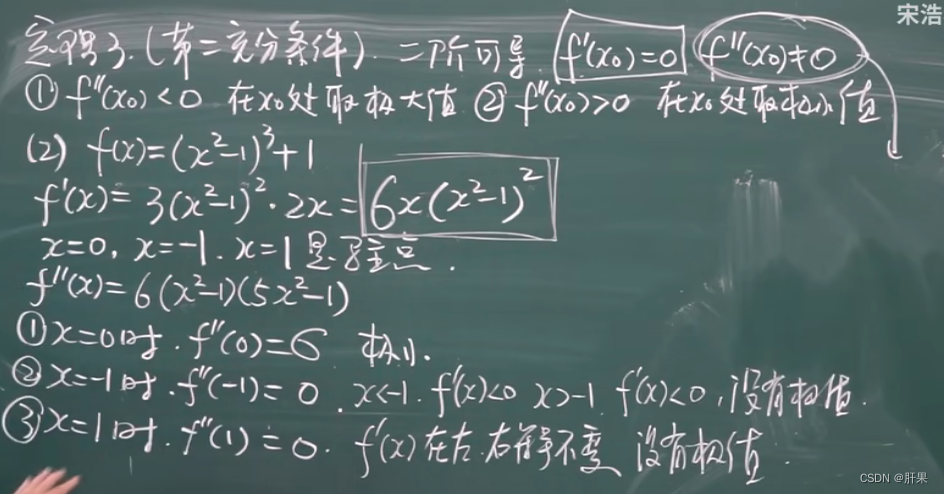 宋浩
定理3.(第二充分条件).二阶可导. f'(x₀)=0 f''(x₀)≠0
① f''(x₀)<0 在x₀处取极大值 ② f''(x₀)>0 在x₀处取极小值
(2) f(x)=(x²-1)³+1
f'(x)=3(x²-1)²·2x=6x(x²-1)²
x=0, x=-1. x=1是驻点.
f''(x)=6(x²-1)(5x²-1)
①x=0时. f''(0)=6 极小.
②x=-1时. f''(-1)=0. x<-1. f'(x)<0 x>-1. f'(x)<0, 没有极值.
③x=1时. f''(1)=0. f'(x)在左.右符号不变 没有极值.
CSDN @肝果